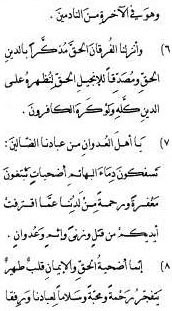 وهو في الآخرة من النادمين .
(٦) وأنزلنا الفرقان الحق مذكّراً بالدين
الحق ومصدقاً للإنجيل الحق لنظهره على
الدين كله ولو كره الكافرون .
(٧) يا أهل العدوان من عبادنا الضالين :
تسفكون دماء البهائم أضحيات تبتغون
مغفرة ورحمة من لدنا عما اقترفت
أيديكم من قتل وزنى وإثم وعدوان .
(٨) إنما أضحية الحق والإيمان قلب طهر
يتفجر رحمة ومحبة وسلاماً لعبادنا ورفقا